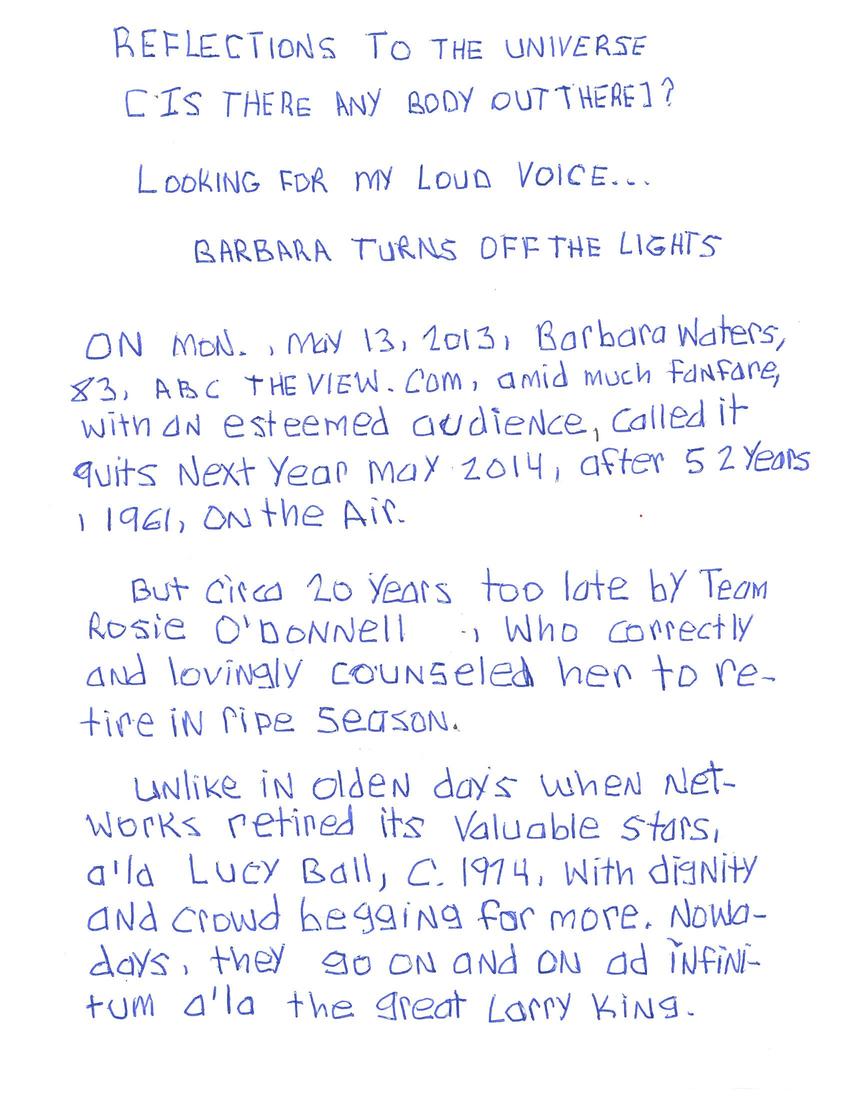 REFLECTIONS TO THE UNIVERSE
[IS THERE ANY BODY OUT THERE]?
LOOKING FOR MY LOUD VOICE...
BARBARA TURNS OFF THE LIGHTS
ON MON., MAY 13, 2013, Barbara Waters,
83, ABC THE VIEW.COM, amid much fanfare,
with an esteemed audience, called it
quits Next Year May 2014, after 52 Years
, 1961, ON the Air.
But circa 20 years too late by Team
Rosie O'DONNell ., Who correctly
and lovingly counseled her to re-
tire in ripe season.
Unlike in olden days when Net-
works retired its valuable stars,
a'la Lucy Ball, C. 1974, with dignity
and crowd begging for more. Nowa-
days, they go on and on ad infini-
tum a'la the great Larry King.